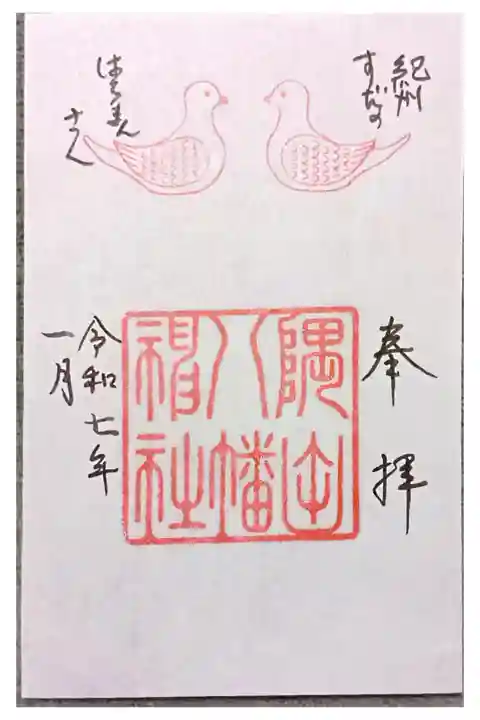 紀州
すだの
はちまん
さん
奉拝
隅田
八幡
神社
令和七年
一月